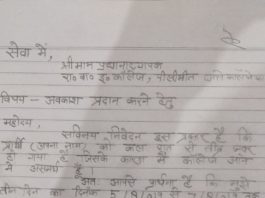 सेवा में,
श्रीमान प्रधानाचार्य
रा० बा० इ० कॉलेज, पीलीभीत
विषय - अवकाश प्रदान करने हेतु
महोदय,
सविनय निवेदन इस प्रकार है कि
प्रार्थी (अपना नाम) को कल रात से तीव्र ज्वर
हो गया है जिसके कारण मैं कॉलेज आने
में असमर्थ हूँ।
अतः आपसे प्रार्थना है कि मुझे
तीन दिन का दिनांक